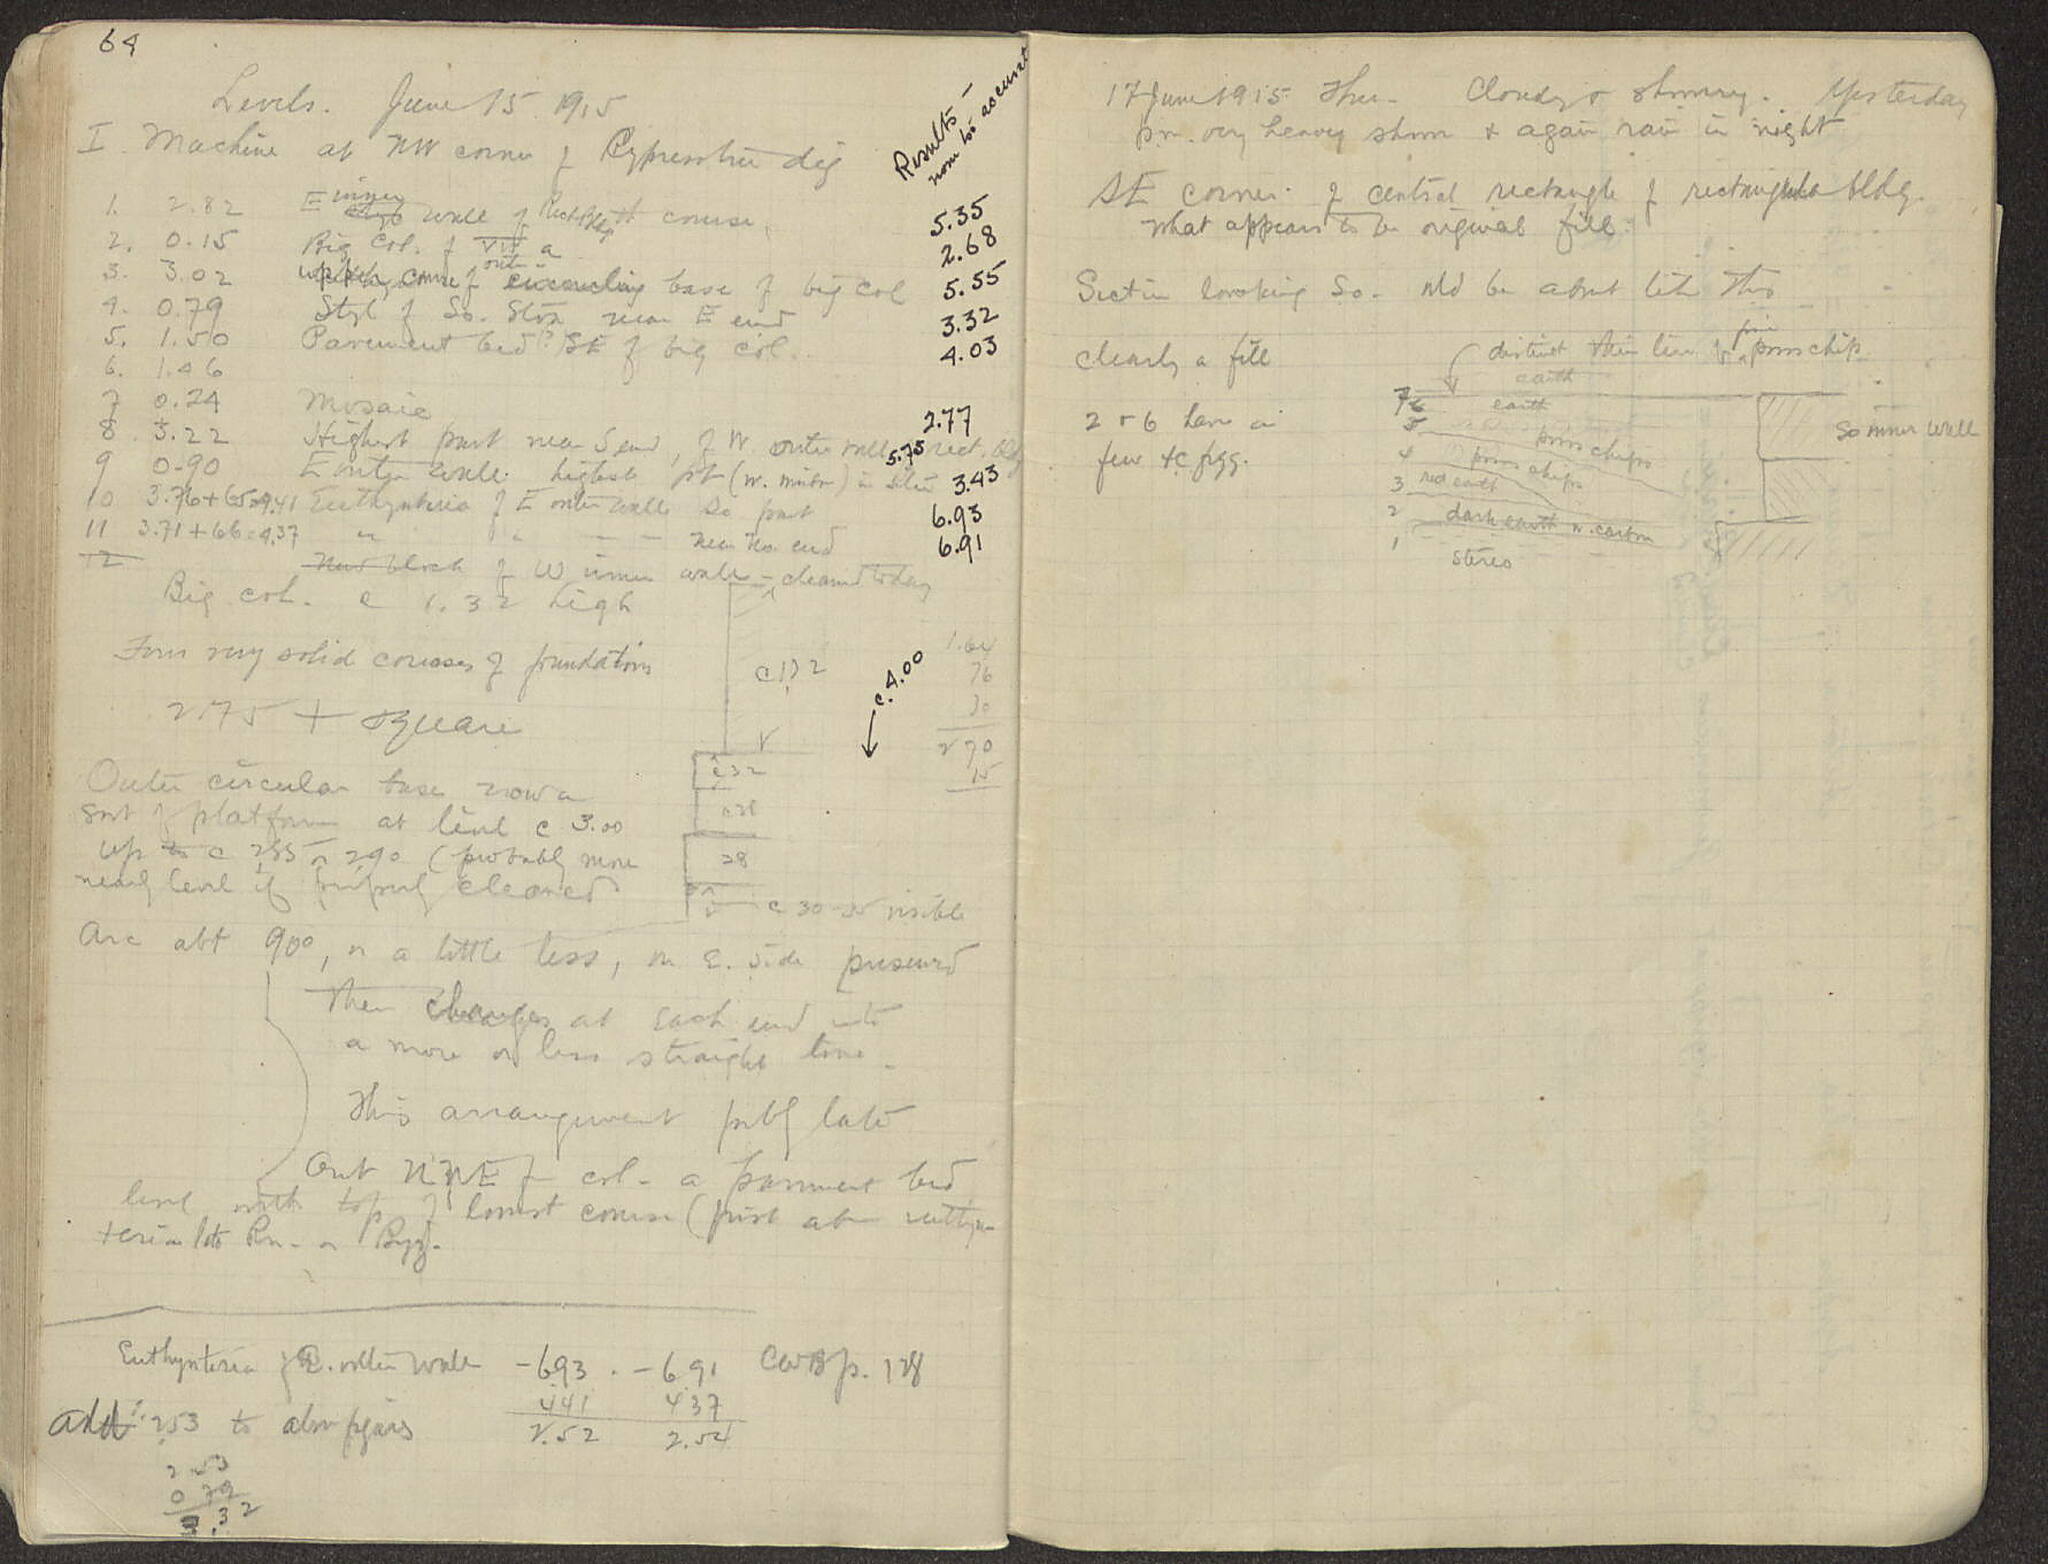 64
Levels. June 15 1915
Results -
none too accurate
I. Machine at NW corner of Cypresstree dig
1. 2.82 E inner wall of Rect. Bldg course. 5.35
2. 0.15 Big col. of VII a 2.68
3. 3.02 upper course of outer encircling base of big col 5.55
4. 0.79 Styl of So. Stoa near E end 3.32
5. 1.50 Pavement bed? SE of big col. 4.03
6. 1.46
7 0.24 Mosaic 2.77
8. 3.22 Highest part near S end, of W outer wall of rect. bldg 5.75
9 0.90 E outer wall highest pt (w. mortar) in situ 3.43
10 3.76+65=4.41 Euthynteria of E outer wall So part 6.93
11 3.71+66=4.37 " " — — near No. end 6.91
12 New block of W inner wall - cleaned today
Big col. c 1.32 high
Four very solid courses of foundations
2.75 + square
c 132
c. 4.00
1.64
76
30
2 70
15
c 32
c 28
28
c 30-35 visible
Outer circular base now a
sort of platform at level c 3.00
up to c 285 or 290 (probably more
nearly level if properly cleaned
Arc abt 90°, or a little less, on E. side preserved
then changes at each end into
a more or less straight line.
This arrangement prbly late
Out NNE of col - a pavement bed
level with top of lowest course (just above euthyn-
teria late Rn. or Byz.
Euthynteria of E. outer wall -693 . -691 CWB p. 128
441 437
add 253 to above figures 2.52 2.54
2 53
0 79
3.32
17 June 1915 Thur. Cloudy & showery. Yesterday
p.m. very heavy shower & again rain in night
SE corner of central rectangle of rectangular bldg.
what appears to be original fill.
Section looking So. wld be about like this
clearly a fill
distinct thin line of fine poros chip
2 & 6 have a
few tc frgg.
earth
7
6 earth
5 poros chips
4 poros chips
3 red earth
2 dark earth w. carbon
1 stereo
So inner wall